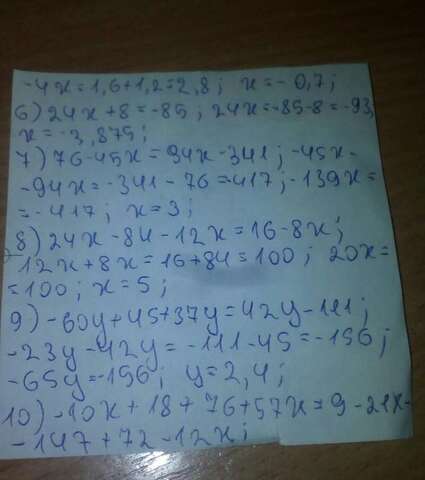 -4x=1,6+1,2=2,8; x=-0,7;
6) 24x+8=-85; 24x=-85-8=-93,
x=-3,875;
7) 76-45x=94x-341; -45x-
-94x=-341-76=417; -139x=
=-417; x=3;
8) 24x-84-12x=16-8x;
12x+8x=16+84=100; 20x=
=100; x=5;
9) -60y+45+37y=42y-111;
-23y-42y=-111-45=-156;
-65y=-156; y=2,4;
10) -10x+18+76+57x=9-21x-
-147+72-12x;